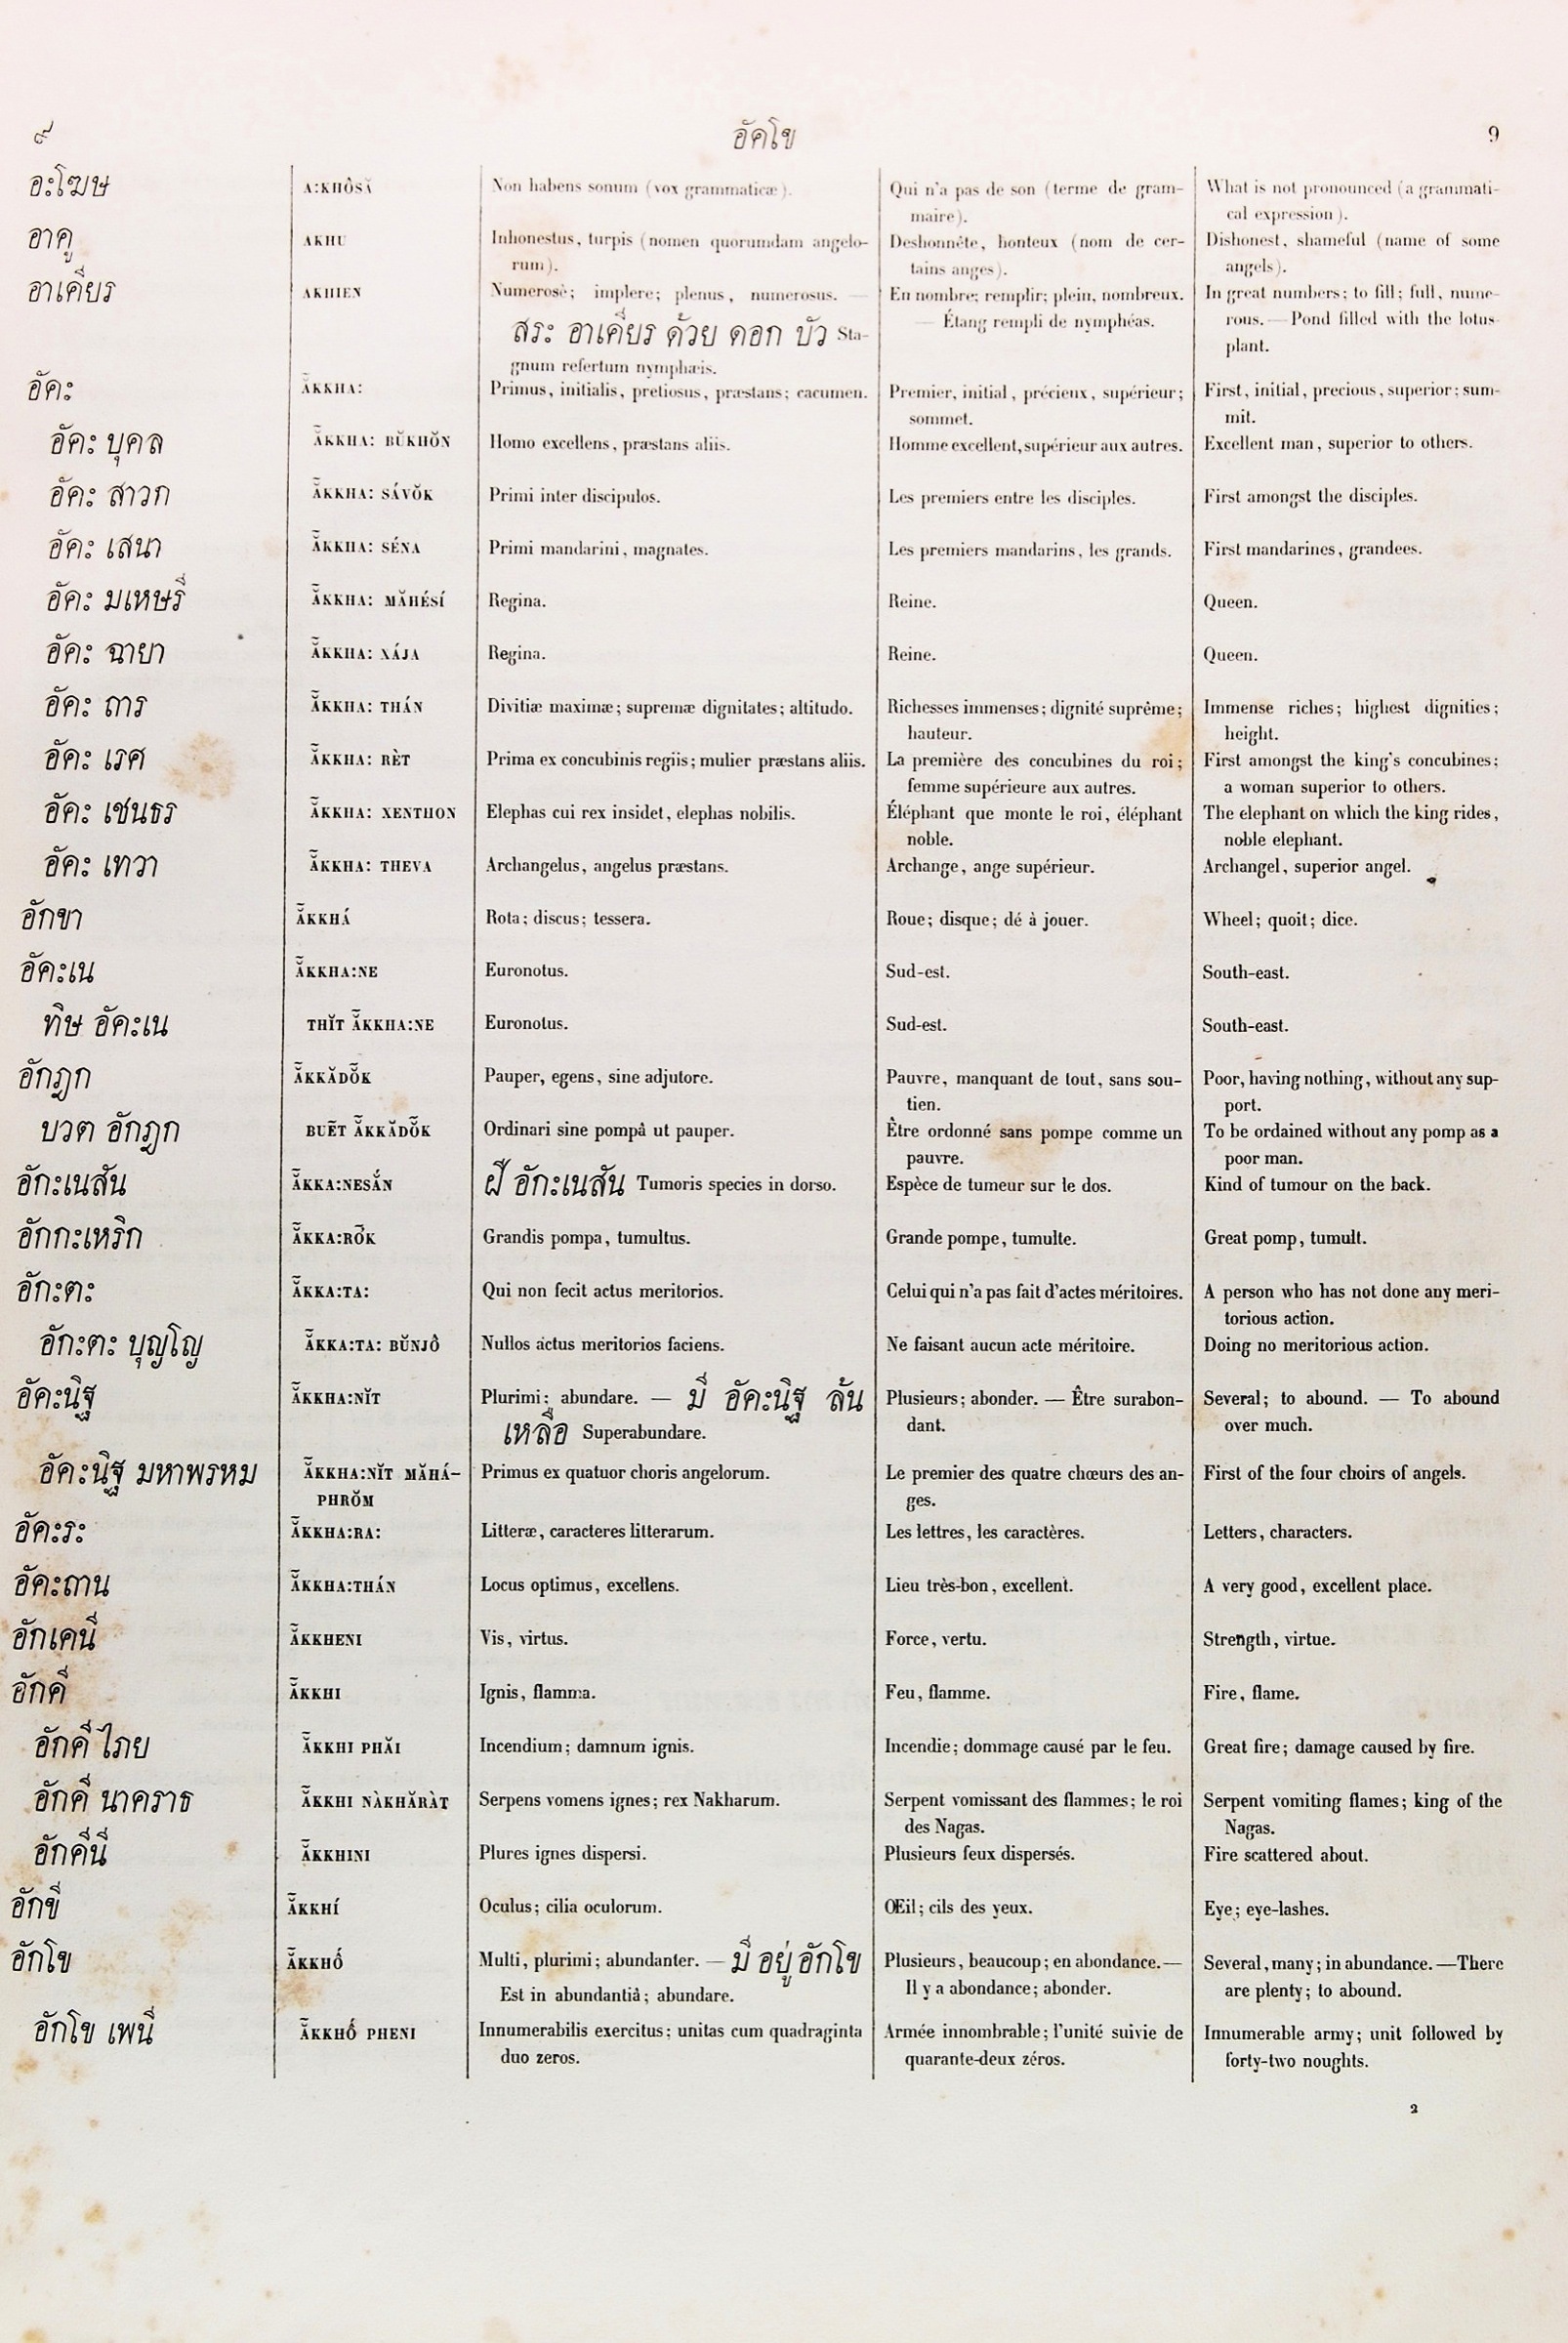 ๙ อัคโข 9
อะโฆษ A:KHÔSĂ Non habens sonum (vox grammaticæ). Qui n'a pas de son (terme de gram- What is not pronounced (a grammati-
maire). cal expression).
อาคู AKHU Inhonestus, turpis (nomen quorumdam angelo- Deshonnête, honteux (nom de cer- Dishonest, shameful (name of some
rum). tains anges). angels).
อาเคียร AKHIEN Numerosè; implere; plenus, numerosus. — En nombre; remplir; plein, nombreux. In great numbers; to fill; full, nume-
สระ อาเคียร ด้วย ดอก บัว Sta- — Étang rempli de nymphéas. rous. — Pond filled with the lotus-
gnum refertum nymphæis. plant.
อัคะ ĂKKHA: Primus, initialis, pretiosus, præstans; cacumen. Premier, initial, précieux, supérieur; First, initial, precious, superior; sum-
sommet. mit.
อัคะ บุคล ĂKKHA: BŬKHŎN Homo excellens, præstans aliis. Homme excellent, supérieur aux autres. Excellent man, superior to others.
อัคะ สาวก ĂKKHA: SÁVŎK Primi inter discipulos. Les premiers entre les disciples. First amongst the disciples.
อัคะ เสนา ĂKKHA: SÉNA Primi mandarini, magnates. Les premiers mandarins, les grands. First mandarines, grandees.
อัคะ มเหษรี ĂKKHA: MĂHÉSÍ Regina. Reine. Queen.
อัคะ ฉายา ĂKKHA: XÁJA Regina. Reine. Queen.
อัคะ ถาร ĂKKHA: THÁN Divitiæ maximæ; supremæ dignitates; altitudo. Richesses immenses; dignité suprême; Immense riches; highest dignities;
hauteur. height.
อัคะ เรศ ĂKKHA: RÈT Prima ex concubinis regiis; mulier præstans aliis. La première des concubines du roi; First amongst the king's concubines;
femme supérieure aux autres. a woman superior to others.
อัคะ เชนธร ĂKKHA: XENTHON Elephas cui rex insidet, elephas nobilis. Éléphant que monte le roi, éléphant The elephant on which the king rides,
noble. noble elephant.
อัคะ เทวา ĂKKHA: THEVA Archangelus, angelus præstans. Archange, ange supérieur. Archangel, superior angel.
อักขา ĂKKHÁ Rota; discus; tessera. Roue; disque; dé à jouer. Wheel; quoit; dice.
อัคะเน ĂKKHA:NE Euronotus. Sud-est. South-east.
ทิษ อัคะเน THĬT ĂKKHA:NE Euronotus. Sud-est. South-east.
อักฎก ĂKKĂDŎK Pauper, egens, sine adjutore. Pauvre, manquant de tout, sans sou- Poor, having nothing, without any sup-
tien. port.
บวต อักฎก BUĔT ĂKKĂDŎK Ordinari sine pompâ ut pauper. Être ordonné sans pompe comme un To be ordained without any pomp as a
pauvre. poor man.
อักะเนสัน ĂKKA:NESẮN ฝี อักะเนสัน Tumoris species in dorso. Espèce de tumeur sur le dos. Kind of tumour on the back.
อักกะเหริก ĂKKA:RŎK Grandis pompa, tumultus. Grande pompe, tumulte. Great pomp, tumult.
อักะตะ ĂKKA:TA: Qui non fecit actus meritorios. Celui qui n'a pas fait d'actes méritoires. A person who has not done any meri-
torious action.
อักะตะ บุญโญ ĂKKA:TA: BŬNJÔ Nullos actus meritorios faciens. Ne faisant aucun acte méritoire. Doing no meritorious action.
อัคะนิฐ ĂKKHA:NĬT Plurimi; abundare. — มี อัคะนิฐ ล้น Plusieurs; abonder. — Être surabon- Several; to abound. — To abound
เหลือ Superabundare. dant. over much.
อัคะนิฐ มหาพรหม ĂKKHA:NĬT MĂHÁ- Primus ex quatuor choris angelorum. Le premier des quatre chœurs des an- First of the four choirs of angels.
PHRŎM ges.
อัคะระ ĂKKHA:RA: Litteræ, caracteres litterarum. Les lettres, les caractères. Letters, characters.
อัคะถาน ĂKKHA:THÁN Locus optimus, excellens. Lieu très-bon, excellent. A very good, excellent place.
อักเคนี ĂKKHENI Vis, virtus. Force, vertu. Strength, virtue.
อักคี ĂKKHI Ignis, flamma. Feu, flamme. Fire, flame.
อักคี ไภย ĂKKHI PHĂI Incendium; damnum ignis. Incendie; dommage causé par le feu. Great fire; damage caused by fire.
อักคี นาคราธ ĂKKHI NÀKHĂRÀT Serpens vomens ignes; rex Nakharum. Serpent vomissant des flammes; le roi Serpent vomiting flames; king of the
des Nagas. Nagas.
อักคีนี ĂKKHINI Plures ignes dispersi. Plusieurs feux dispersés. Fire scattered about.
อักขี ĂKKHÍ Oculus; cilia oculorum. Œil; cils des yeux. Eye; eye-lashes.
อักโข ĂKKHỐ Multi, plurimi; abundanter. — มี อยู่ อักโข Plusieurs, beaucoup; en abondance. — Several, many; in abundance. — There
Est in abundantiâ; abundare. Il y a abondance; abonder. are plenty; to abound.
อักโข เพนี ĂKKHỐ PHENI Innumerabilis exercitus; unitas cum quadraginta Armée innombrable; l'unité suivie de Innumerable army; unit followed by
duo zeros. quarante-deux zéros. forty-two noughts.
2